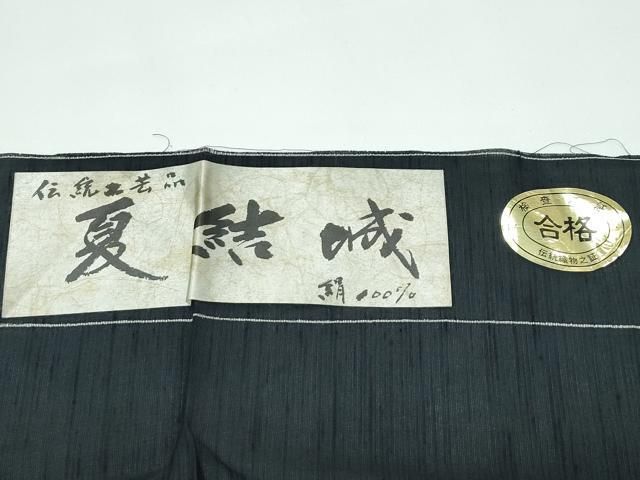 伝統工芸品
夏結城
絹100%
合格
伝統織物之証